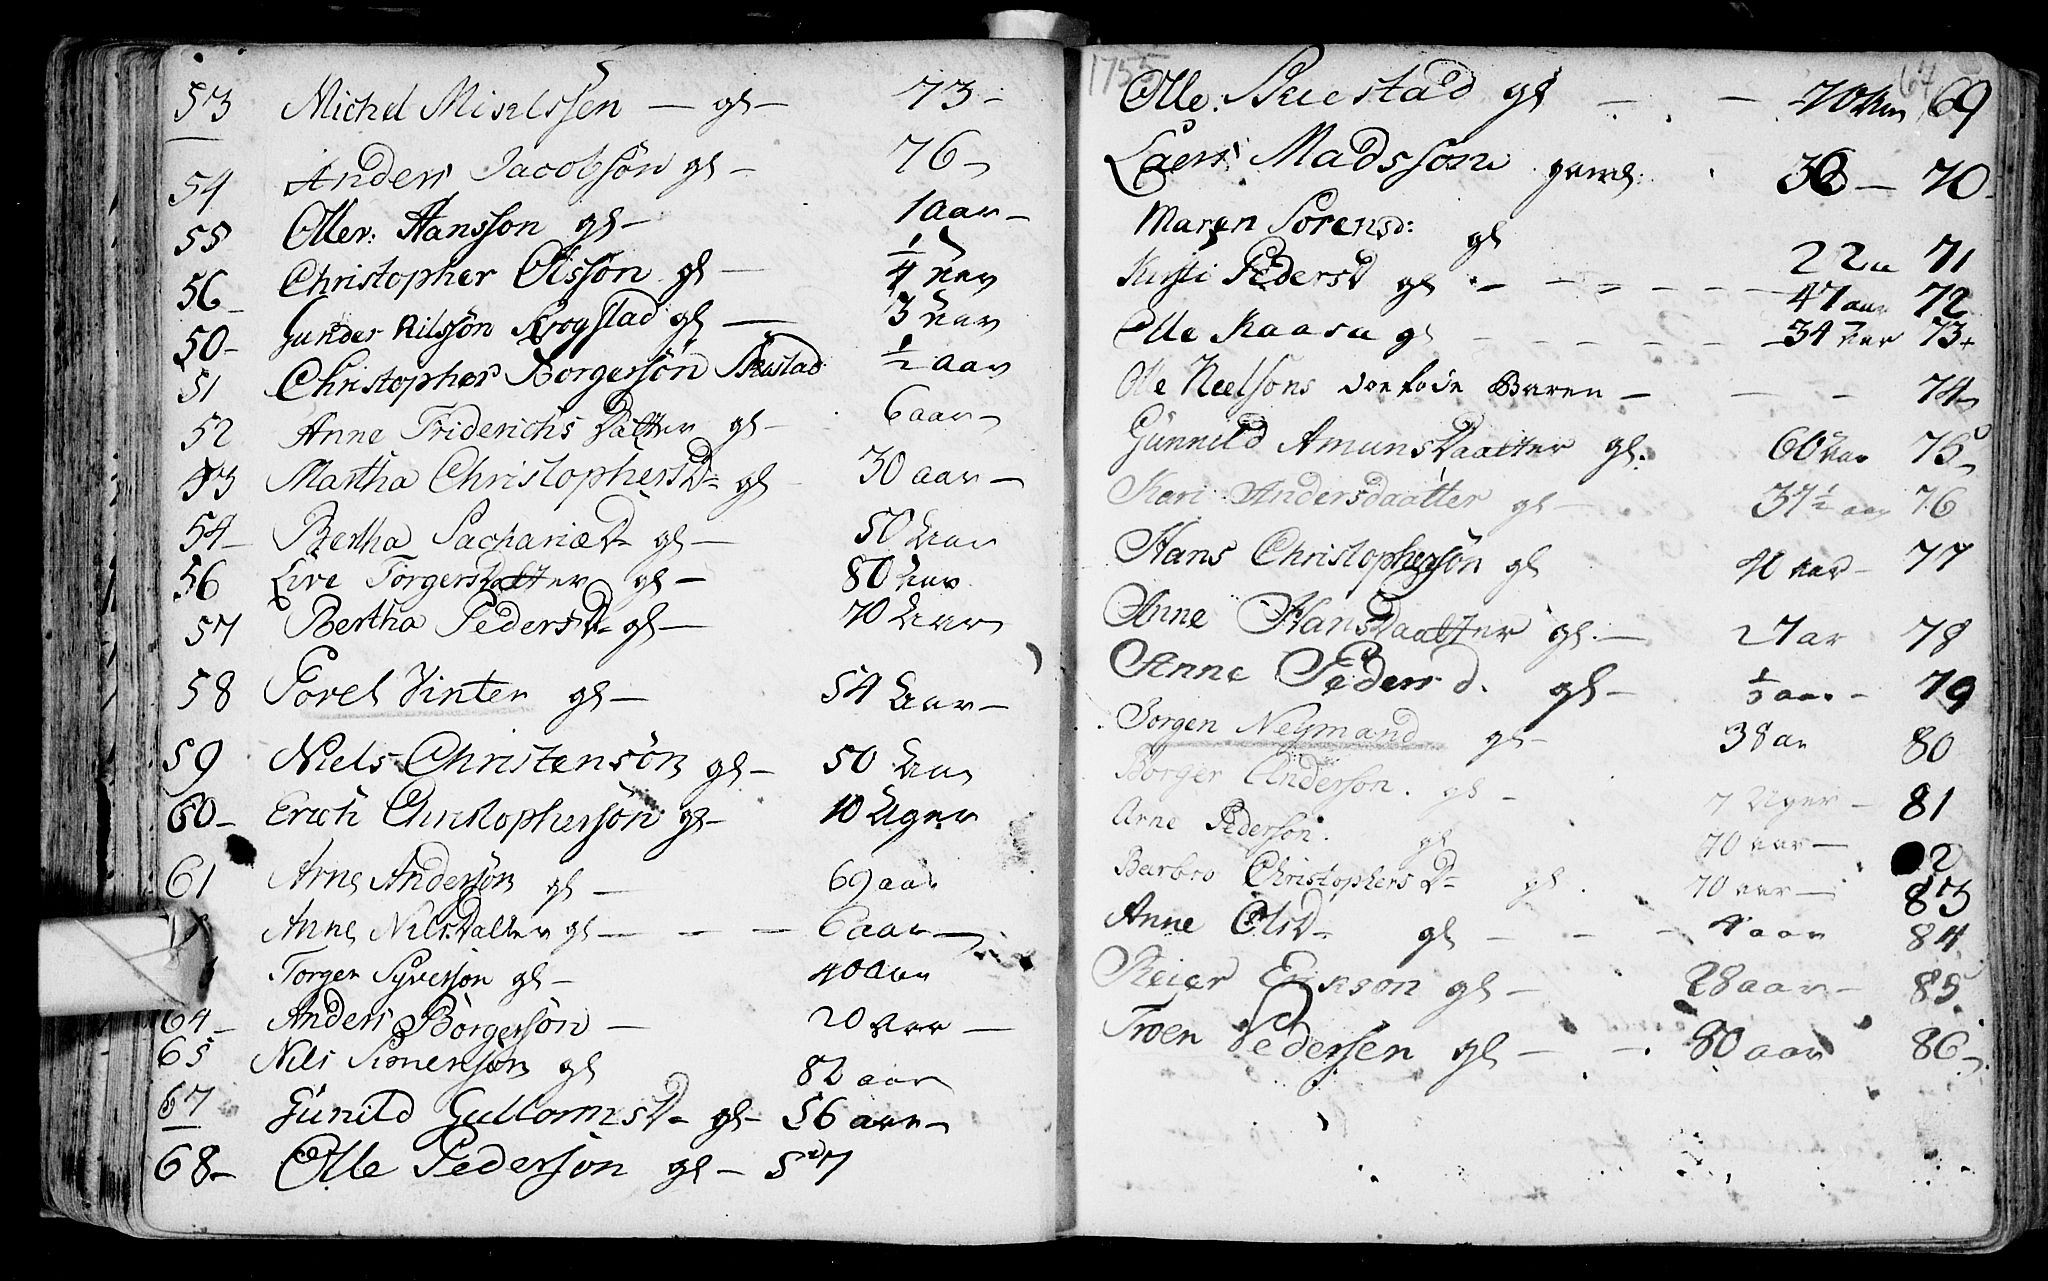 53 Michel Mislssen — gl — 73 -
54 Anders Jacobsøn gl — 76 -
55 Oller: Hansson gl — 1 aar —
56 - Christopher Olsson gl — 1/4 aar
50 - Gunder Nilssøn Krogstad gl — 3 aar
51 Christopher Borgersøn Skustad 1/2 aar
52 Anne Friderichs Datter gl — 6 aar —
53 Martha ChristophersD- gl 30 aar —
54 - Bertha SachariæD- gl — 50 aar
56 Live Torgersdatter gl — 80 aar
57 Bertha PedersD- gl — 70 aar
58 Torel Vinter gl — 54 aar —
59 Niels Christensøn gl — 50 aar
60 - Erich Christophersøn gl — 10 Uger
61 Arne Andersøn gl — 69 aar
Anne NilsDatter gl — — — 6 aar —
Torger Syversøn gl — 40 aar
64 - Anders Børgersøn — 20 aar —
65 Nils Simensøn gl 82 aar
67 Gunild GullormsD- gl — 56 aar —
68 - Olle Pedersøn gl — 57
1755 64
Olle Skuestad gl — — 70 aar 69
Laers Madsson gaml: 36 — 70 -
Maren Sorensd: gl 22 a 71
Kirsti PedersD gl — — — — 47 aar 72
Olle Kaasa gl — — — — 34 aar 73
Olle Neelsons døefødde Baren — — - 74
Gunnild AmunsDaatter gl: 60 aar 75
Kari Andersdaatter gl — 37 1/2 aar 76
Hans Christophersøn gl 40 aar — 77
Anne HansDaatter gl. — 27 ar 78
Anne Peders d. gl — 1/3 aar - 79
Jorgen Neymand gl — 38 aa 80
Borger Anderson. gl — 7 Uger — 81
Arne Pederson. gl 70 aar — 2
Barbro ChristophersD- gl. 70 aar — 83
Anne OlsD- gl — — — 4 aar 84
Reier Erikson gl — 28 aar — 85
Troen Pedersen gl — — 80 aar 86 -